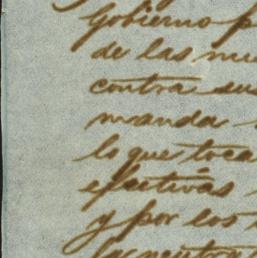 Gobierno p
de las mu
contra sus
manda
lo que toca
efectivas
y por los